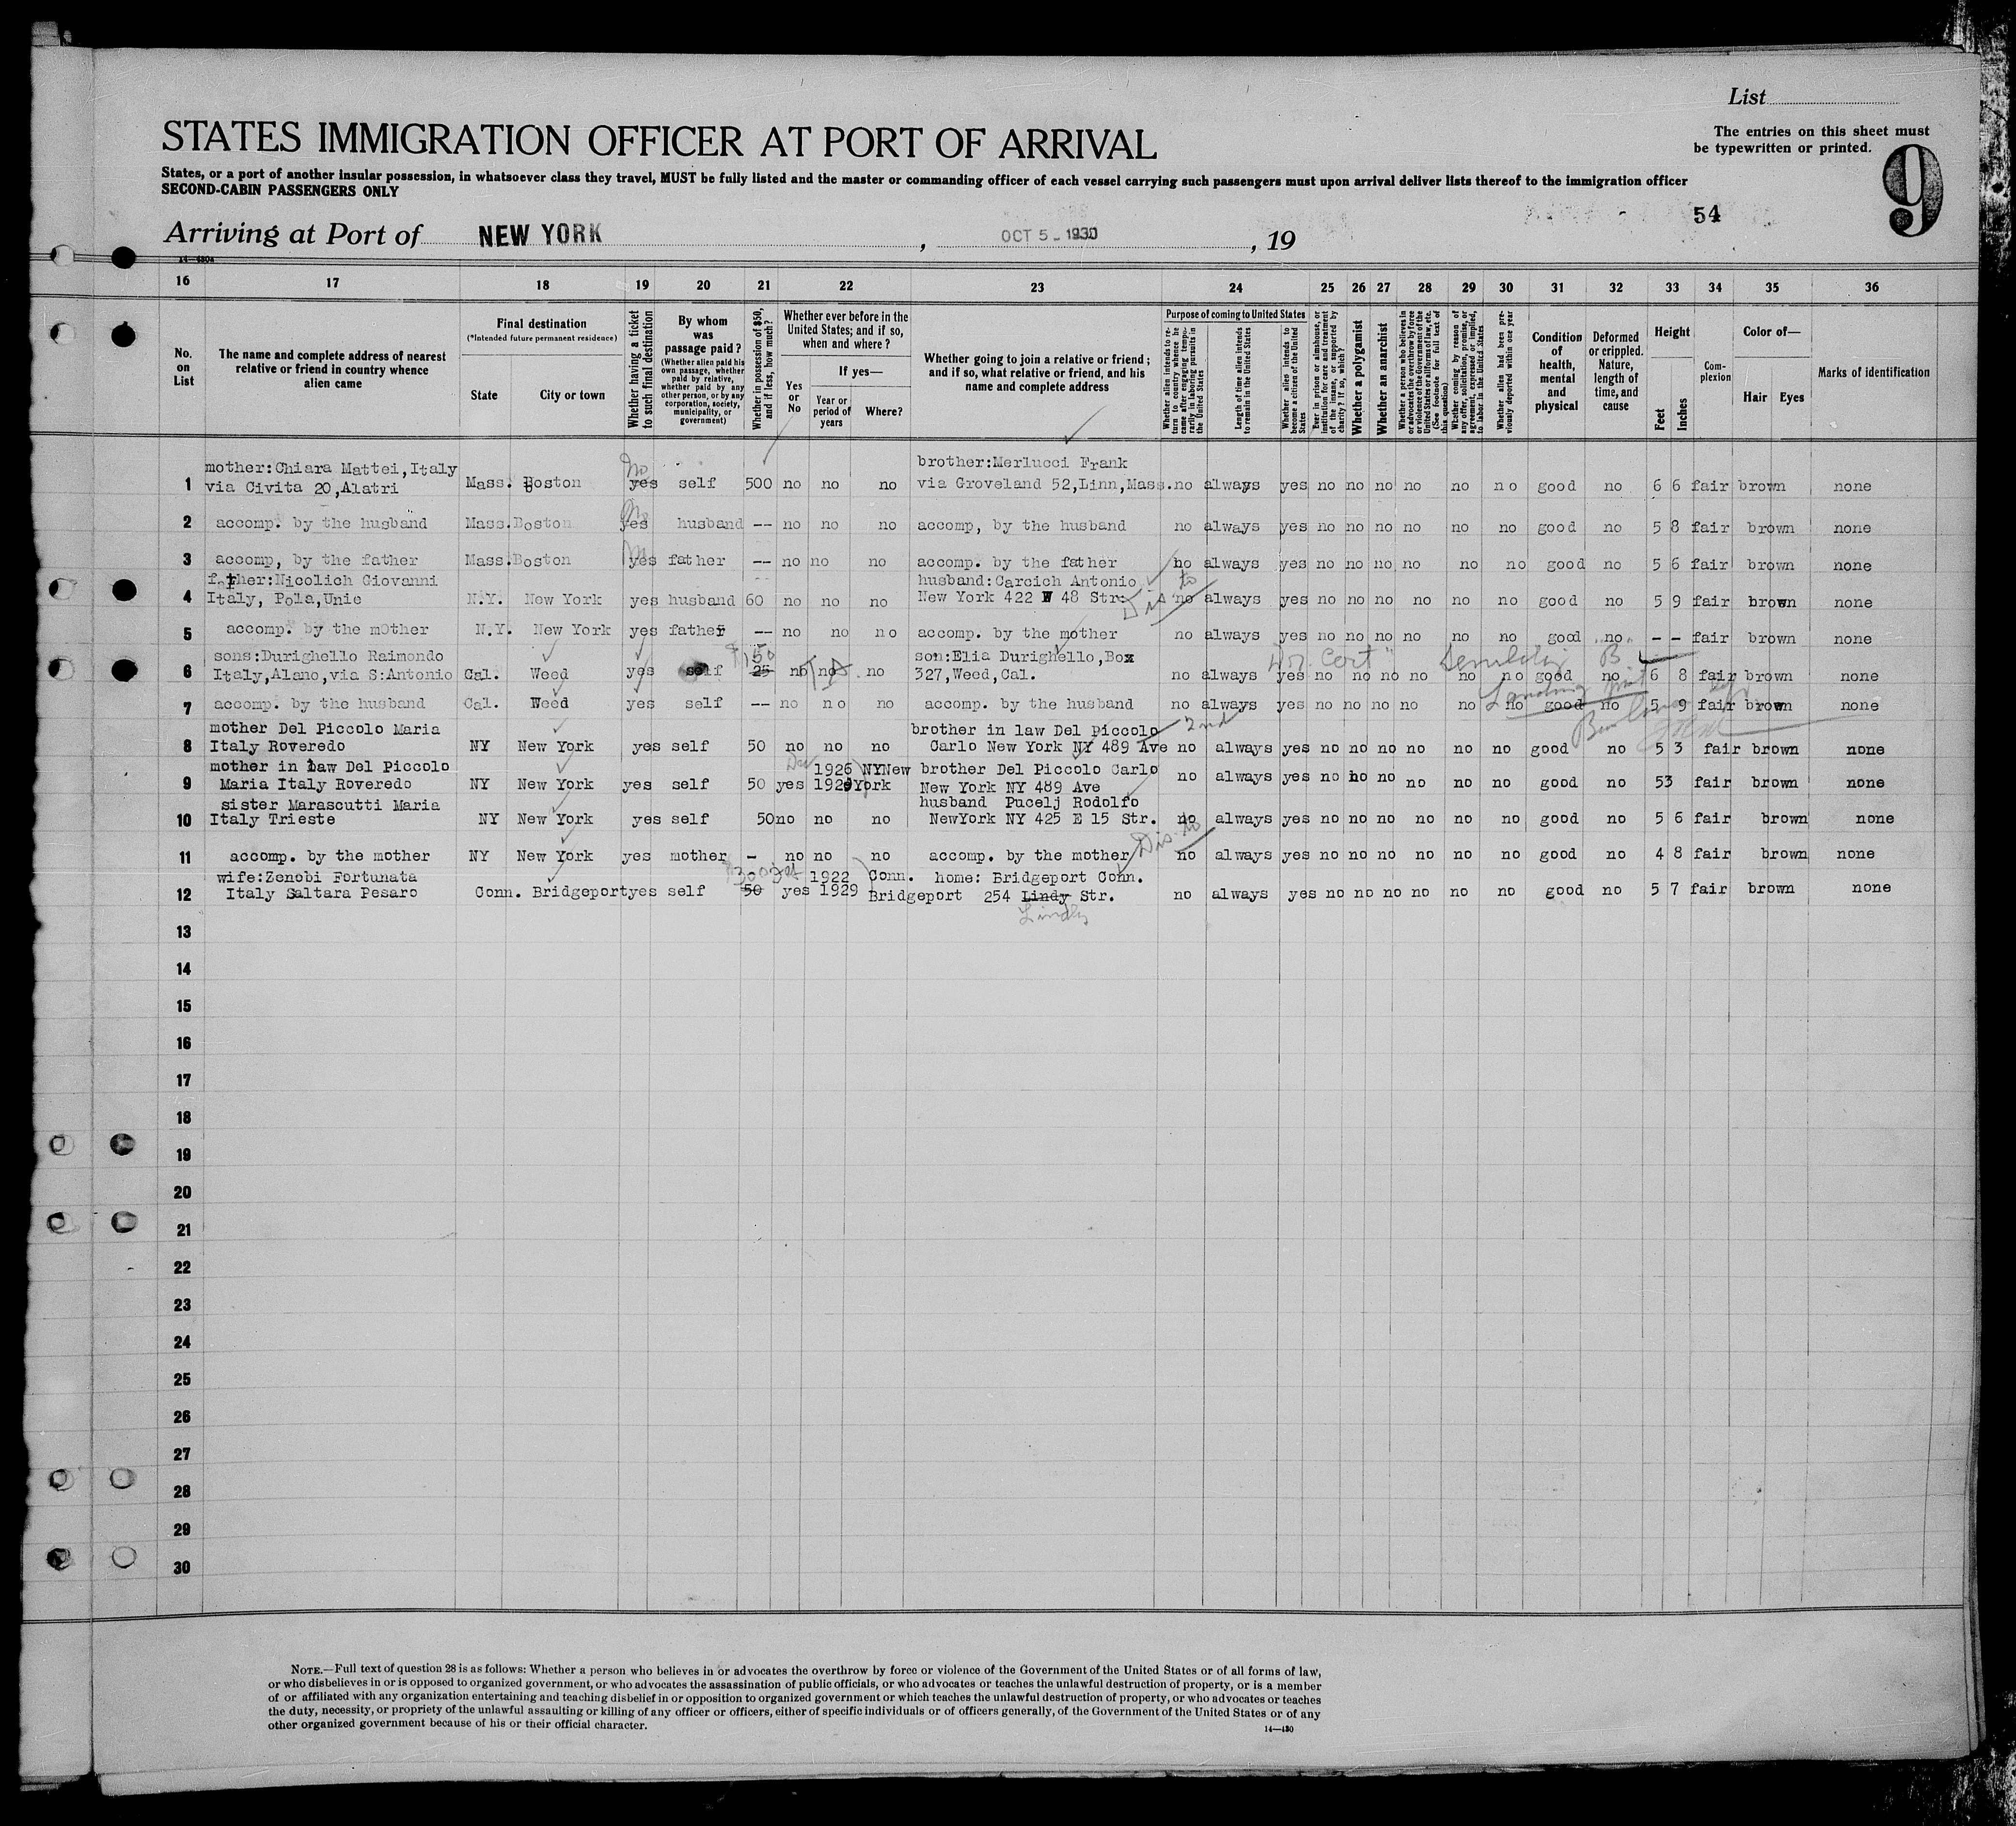 List
STATES IMMIGRATION OFFICER AT PORT OF ARRIVAL
The entries on this sheet must
be typewritten or printed.
States, or a port of another insular possession, in whatsoever class they travel, MUST be fully listed and the master or commanding officer of each vessel carrying such passengers must upon arrival deliver lists thereof to the immigration officer
SECOND-CABIN PASSENGERS ONLY
9
54
Arriving at Port of NEW YORK, OCT 5 - 1930, 19
14—430a
16 17 18 19 20 21 22 23 24 25 26 27 28 29 30 31 32 33 34 35 36
No. on List
The name and complete address of nearest relative or friend in country whence alien came
Final destination
(*Intended future permanent residence)
State
City or town
Whether having a ticket to such final destination
By whom was passage paid?
(Whether alien paid his own passage, whether paid by relative, whether paid by any other person, or by any corporation, society, municipality, or government)
Whether in possession of $50, and if less, how much?
Whether ever before in the United States; and if so, when and where?
Yes or No
If yes—
Year or period of years
Where?
Whether going to join a relative or friend; and if so, what relative or friend, and his name and complete address
Purpose of coming to United States
Whether alien intends to return to country whence he came after engaging temporarily in laboring pursuits in the United States
Length of time alien intends to remain in the United States
Whether alien intends to become a citizen of the United States
Ever in prison or almshouse, or institution for care and treatment of the insane, or supported by charity? If so, which?
Whether a polygamist
Whether an anarchist
Whether a person who believes in or advocates the overthrow by force or violence of the Government of the United States or all forms of law, etc. (See footnote for full text of this question)
Whether coming by reason of any offer, solicitation, promise, or agreement, expressed or implied, to labor in the United States
Whether alien had been previously deported within one year
Condition of health, mental and physical
Deformed or crippled. Nature, length of time, and cause
Height
Feet
Inches
Complexion
Color of—
Hair Eyes
Marks of identification
mother:Chiara Mattei,Italy brother:Merlucci Frank
No
1 via Civita 20,Alatri Mass. Boston yes self 500 no no no via Groveland 52,Linn,Mass. no always yes no no no no no no good no 6 6 fair brown none
No
2 accomp. by the husband Mass.Boston yes husband -- no no no accomp, by the husband no always yes no no no no no no good no 5 8 fair brown none
No
3 accomp, by the father Mass.Boston yes father -- no no no accomp. by the father no always yes no no no no no no good no 5 6 fair brown none
father:Nicolich Giovanni husband:Carcich Antonio
4 Italy, Pola,Unie N.Y. New York yes husband 60 no no no New York 422 W 48 Str. Dis to no always yes no no no no no no good no 5 9 fair brown none
5 accomp. by the mother N.Y. New York yes father -- no no no accomp. by the mother no always yes no no no no no no good no - - fair brown none
sons:Durighello Raimondo $150 son:Elia Durighello,Box
6 Italy,Alano,via S:Antonio Cal. Weed yes self 25 no no no 327,Weed,Cal. no always yes no no no no no no good no 6 8 fair brown none
Cert Senility B
7 accomp. by the husband Cal. Weed yes self -- no no no accomp. by the husband no always yes no no no no no no good no 5 9 fair brown none
Landing
mother Del Piccolo Maria brother in law Del Piccolo 2nd
8 Italy Roveredo NY New York yes self 50 no no no Carlo New York NY 489 Ave no always yes no no no no no no good no 5 3 fair brown none
mother in law Del Piccolo 1926 NYNew brother Del Piccolo Carlo
9 Maria Italy Roveredo NY New York yes self 50 yes 1929 York New York NY 489 Ave no always yes no no no no no no good no 53 fair brown none
sister Marascutti Maria husband Pucelj Rodolfo
10 Italy Trieste NY New York yes self 50 no no no NewYork NY 425 E 15 Str. no always yes no no no no no no good no 5 6 fair brown none
11 accomp. by the mother NY New York yes mother - no no no accomp. by the mother Dis. to no always yes no no no no no no good no 4 8 fair brown none
wife:Zenobi Fortunata 300 1922 Conn. home: Bridgeport Conn.
12 Italy Saltara Pesaro Conn. Bridgeport yes self 50 yes 1929 Bridgeport 254 Lindy Str. no always yes no no no no no no good no 5 7 fair brown none
13
14
15
16
17
18
19
20
21
22
23
24
25
26
27
28
29
30
NOTE.—Full text of question 28 is as follows: Whether a person who believes in or advocates the overthrow by force or violence of the Government of the United States or of all forms of law,
or who disbelieves in or is opposed to organized government, or who advocates the assassination of public officials, or who advocates or teaches the unlawful destruction of property, or is a member
of or affiliated with any organization entertaining and teaching disbelief in or opposition to organized government or which teaches the unlawful destruction of property, or who advocates or teaches
the duty, necessity, or propriety of the unlawful assaulting or killing of any officer or officers, either of specific individuals or of officers generally, of the Government of the United States or of any
other organized government because of his or their official character.
14—430